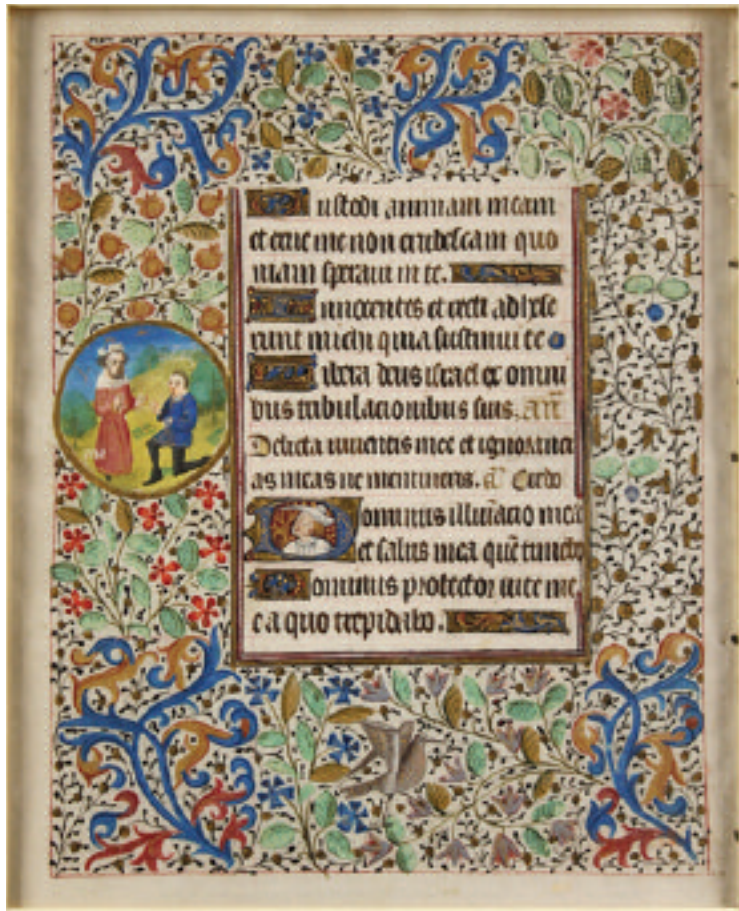 Custodi animam meam
et erue me non erubescam quo
niam speraui in te.
Innocentes et recti adhese
runt michi quia sustinui te
Libera deus israel ex omni
bus tribulacionibus suis. añ
Delicta iuuentutis mee et ignoranci
as meas ne memineris. añ Credo
Dominus illuīacio mea
et salus mea quē timebo
Dominus protector uite me
e a quo trepidabo.